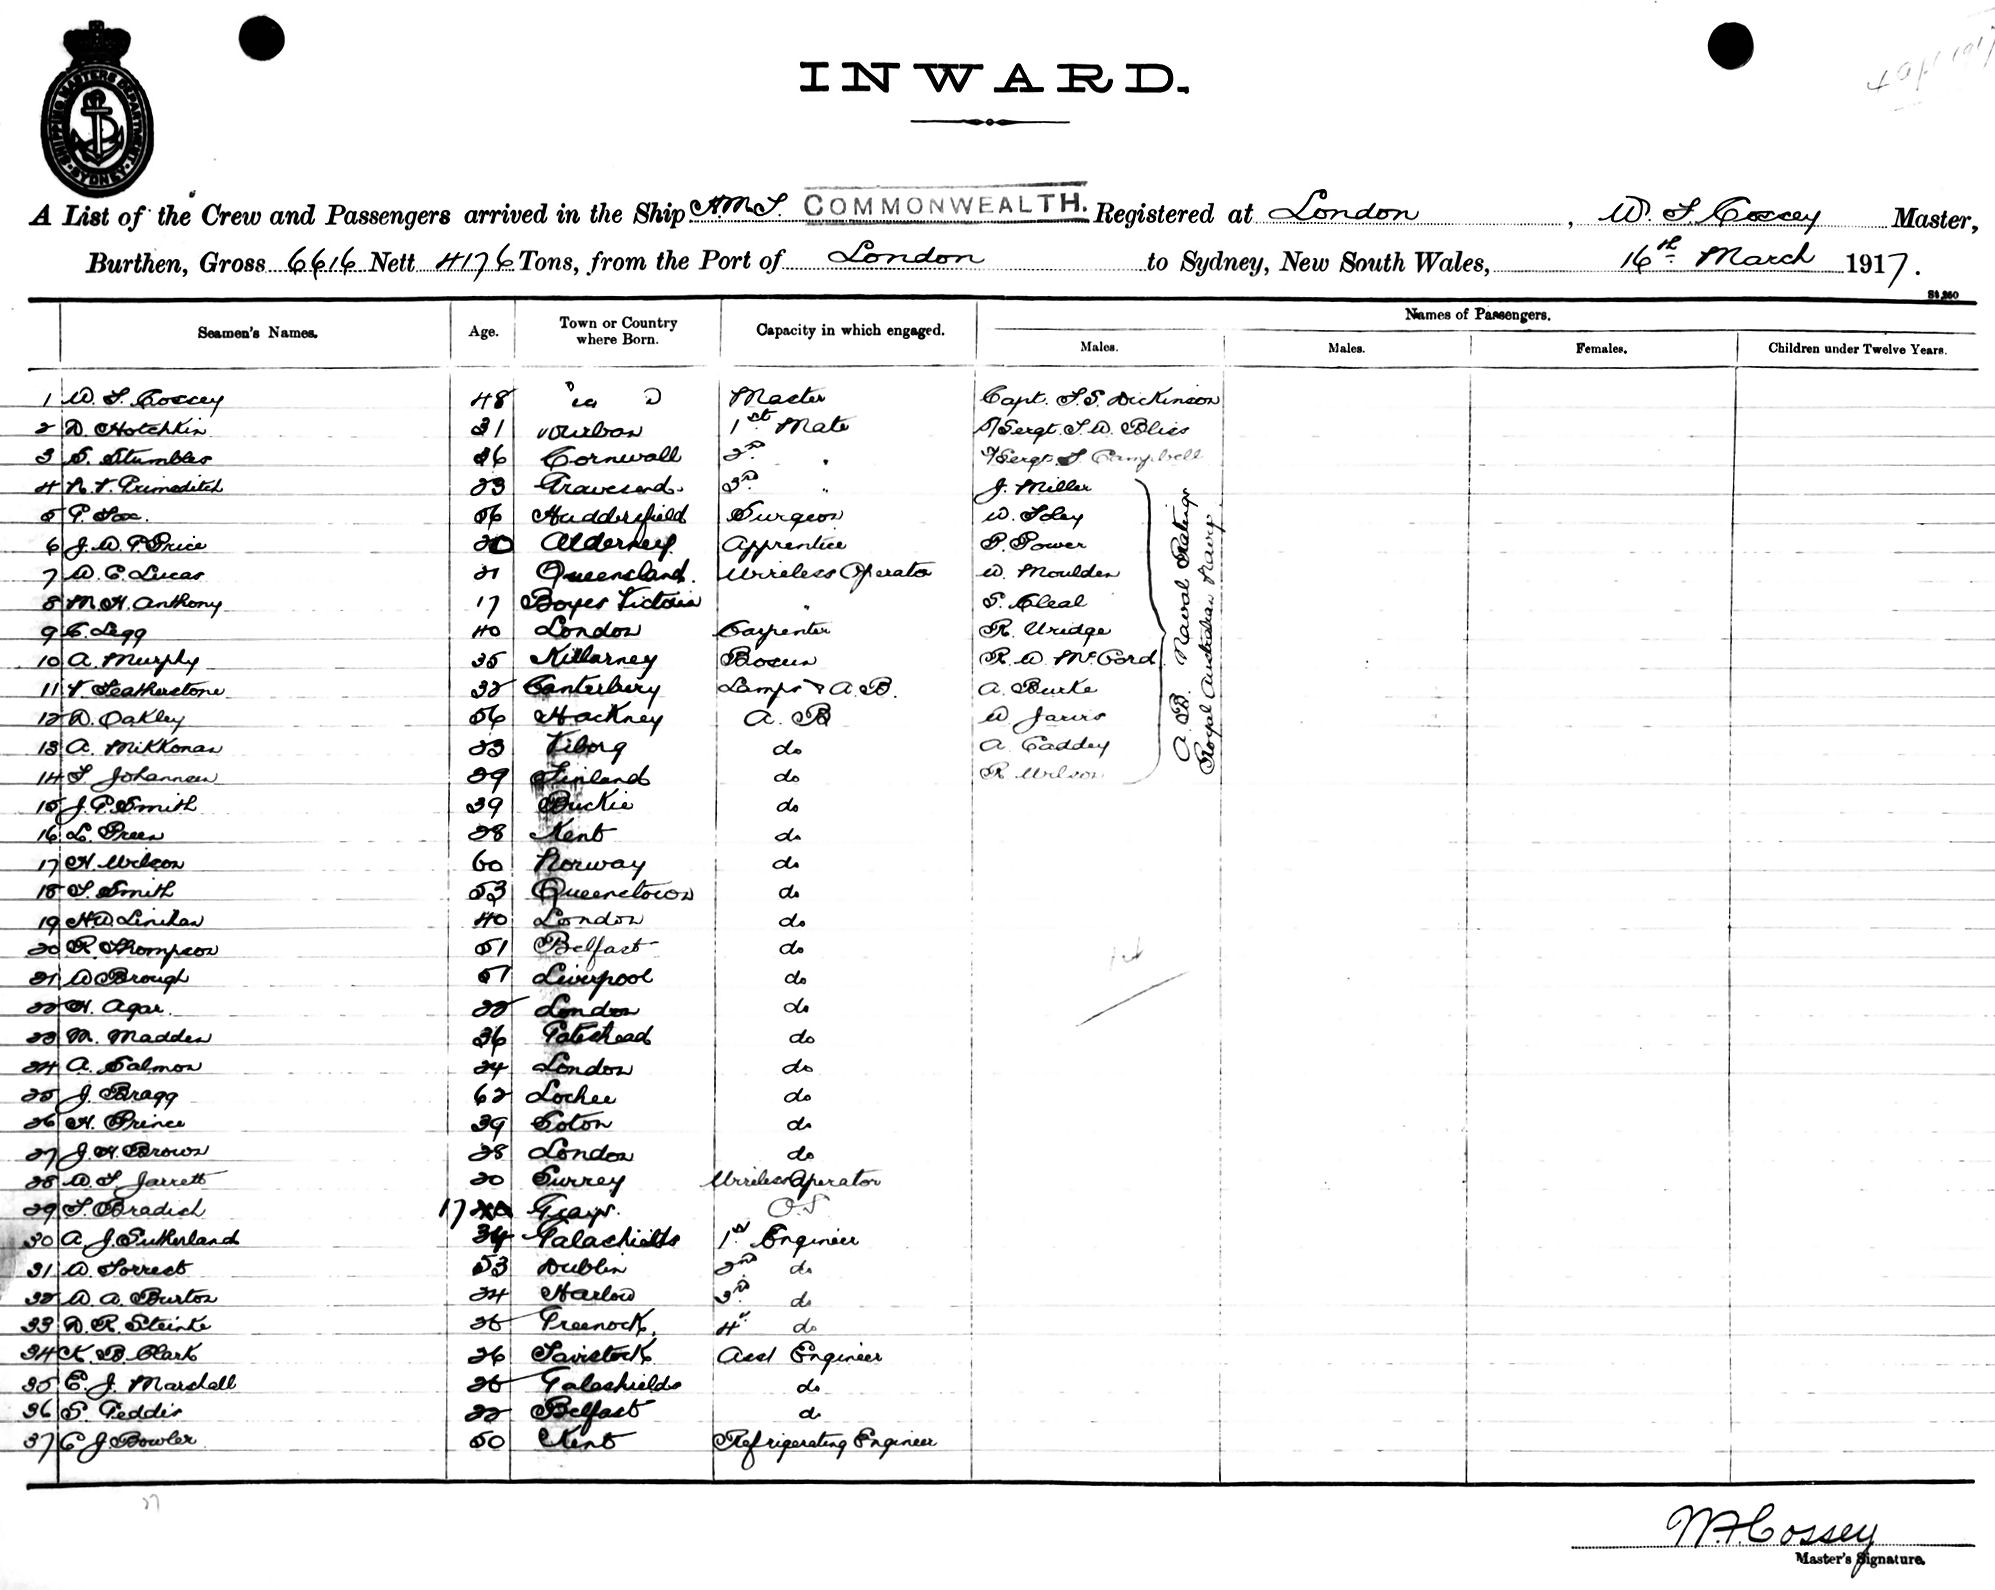 INWARD.
SHIPPING MASTERS DEPARTMENT SYDNEY
A List of the Crew and Passengers arrived in the Ship COMMONWEALTH. Registered at London, W. F. Cossey Master,
Burthen, Gross 6616 Nett 4176 Tons, from the Port of London to Sydney, New South Wales, 16th March 1917.
Seamen's Names. Age. Town or Country where Born. Capacity in which engaged. Names of Passengers.
Males. Males. Females. Children under Twelve Years.
1 W. F. Cossey 48 Master Capt. F. S. Dickinson
2 D. Hotchkin 31 1st Mate S/Sergt. F. W. Bliss
3 S. Stumbles 36 Cornwall 2nd " S/Sergt. F. Campbell
4 Gravesend. 3rd " J. Miller
5 P. Fox. 56 Huddersfield Surgeon W. Foley
6 J. W. P. Price 20 Alderney Apprentice P. Power
7 W. C. Lucas 21 Queensland. Wireless Operator W. Moulden
8 M. H. Anthony 17 Victoria " S. Cleal
9 C. Legg 40 London Carpenter R. Uridge
10 A. Murphy 35 Killarney Bosun R. W. McCord
11 V. Featherstone 32 Canterbury Lamps & A.B. A. Burke
12 D. Oakley 56 Hackney A. B W. Jarvis
13 A. Mikkonan 23 Viborg do A. Caddey
14 F. Johannsen 29 Finland do R. Wilson
A. B. Naval Ratings
Royal Australian Navy
15 J. P. Smith 39 Buckie do
16 L. Green 28 Kent do
17 H. Wilson 60 Norway do
18 F. Smith 53 Queenstown do
19 H. W. Linihan 40 London do
20 R. Thompson 51 Belfast do
21 W Brough 51 Liverpool do
22 H. Agar. 22 London do
23 M. Madden 36 Gateshead do
24 A. Salmon 24 London do
25 J. Bragg 62 Lochee do
26 H. Prince 39 Soton do
27 J. H. Brown 28 London do
28 W. F. Jarrett 20 Surrey Wireless Operator
29 F. Bradish 17 Grays. O.S
30 A. J. Sutherland 34 Galashields 1st Engineer
31 W. Forrest 53 Dublin 2nd do
32 W. A. Burton 24 Harlow 3rd do
33 D. R. Steinke 25 Greenock. 4th do
34 K. B. Clark 26 Tavistock Asst Engineer
35 C. J. Marshall 25 Galashields do
36 S. Geddis 22 Belfast do
37 C J. Bowler 50 Kent Refrigerating Engineer
W. F. Cossey
Master's Signature.